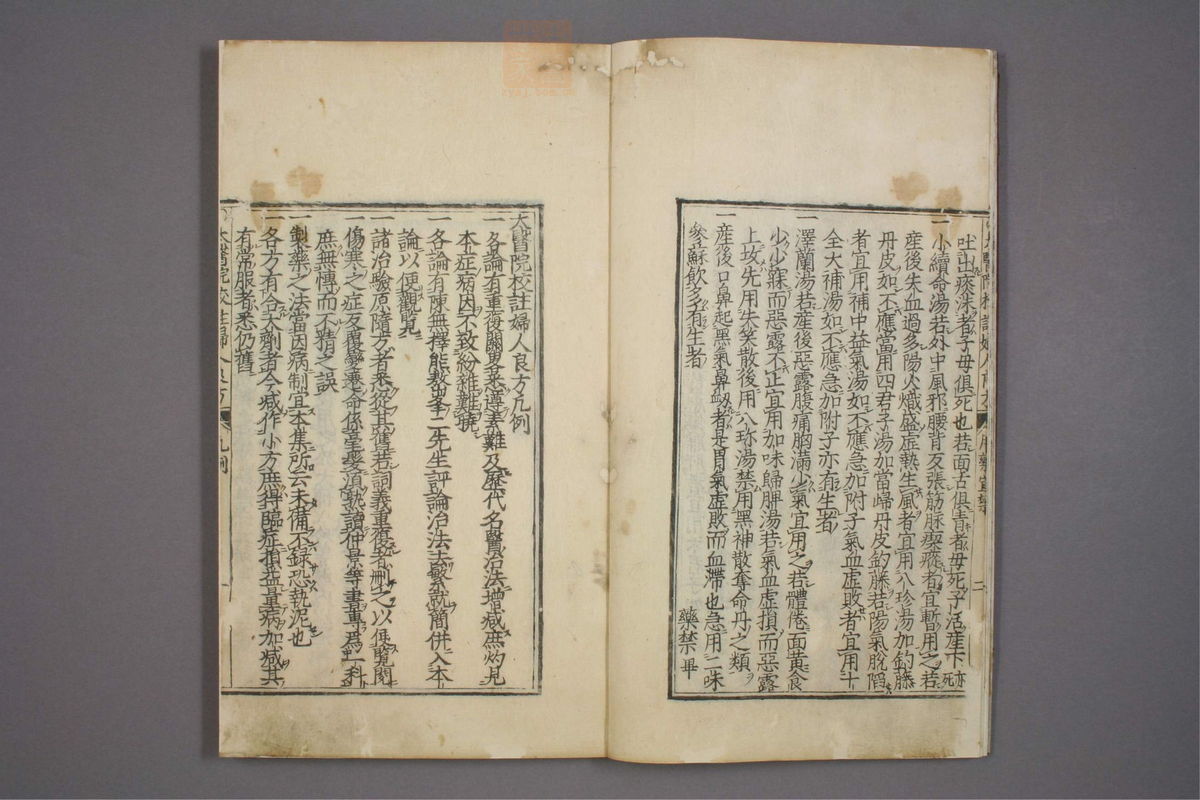 吐出痰沫者子母俱死也若面舌俱青者母死子活産下亦死
一小續命湯若外中風邪腰背反張筋脉瘈瘲者宜暫用之若
産後失血過多陽火熾盛虛熱生風者宜用八珍湯加釣藤
丹皮如不應當用四君子湯加當歸丹皮釣藤若陽氣脫陷
者宜用補中益氣湯如不應急加附子氣血虛敗者宜用十
全大補湯如不應急加附子亦有生者
一澤蘭湯若産後惡露腹痛胸滿少氣宜用之若體倦面黃食
少少寐而惡露不止宜用加味歸脾湯若氣血虛損而惡露
上攻先用失笑散後用八珍湯禁用黑神散奪命丹之類
一産後口鼻起黑氣鼻衂者是胃氣虛敗而血滯也急用二味
參蘇飲多有生者
藥禁畢
太醫院校註婦人良方凡例
一各論有重復闕畧悉遵素難及歷代名醫治法增減庶灼見
本症病因不致紛雜難曉
一各論有陳無擇熊鰲峯二先生評論治法去繁就簡併入本
論以便觀覧
一諸治驗原隨方者悉從其舊若詞義重復者刪之以便覧閱
一傷寒之症反覆變遷命係毫髮須熟讀仲景等書專爲一科
庶無傳而不精之誤
一製藥之法當因病制宜本集所云未備不録恐執泥也
一各方有合大劑者今減作小方庶得臨症損益量病加減其
有常服者悉仍舊
太醫院校註婦人良方
凡例
一